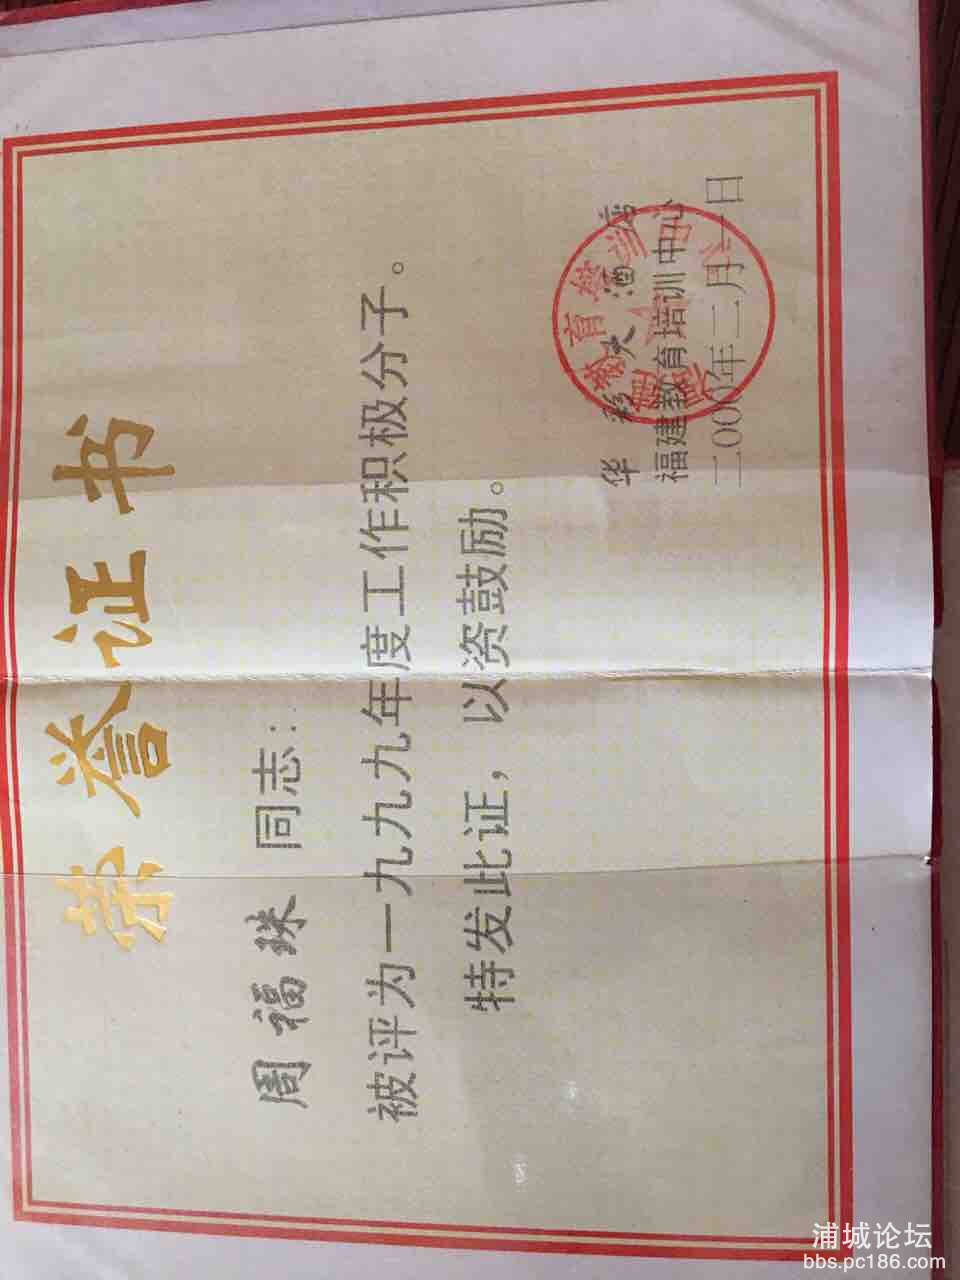 荣誉证书
周福珠 同志:
被评为一九九九年度工作积极分子。
特发此证,以资鼓励。
华彩大酒店
福建教育培训中心
二000年二月一日
浦城论坛
bbs.pc186.com